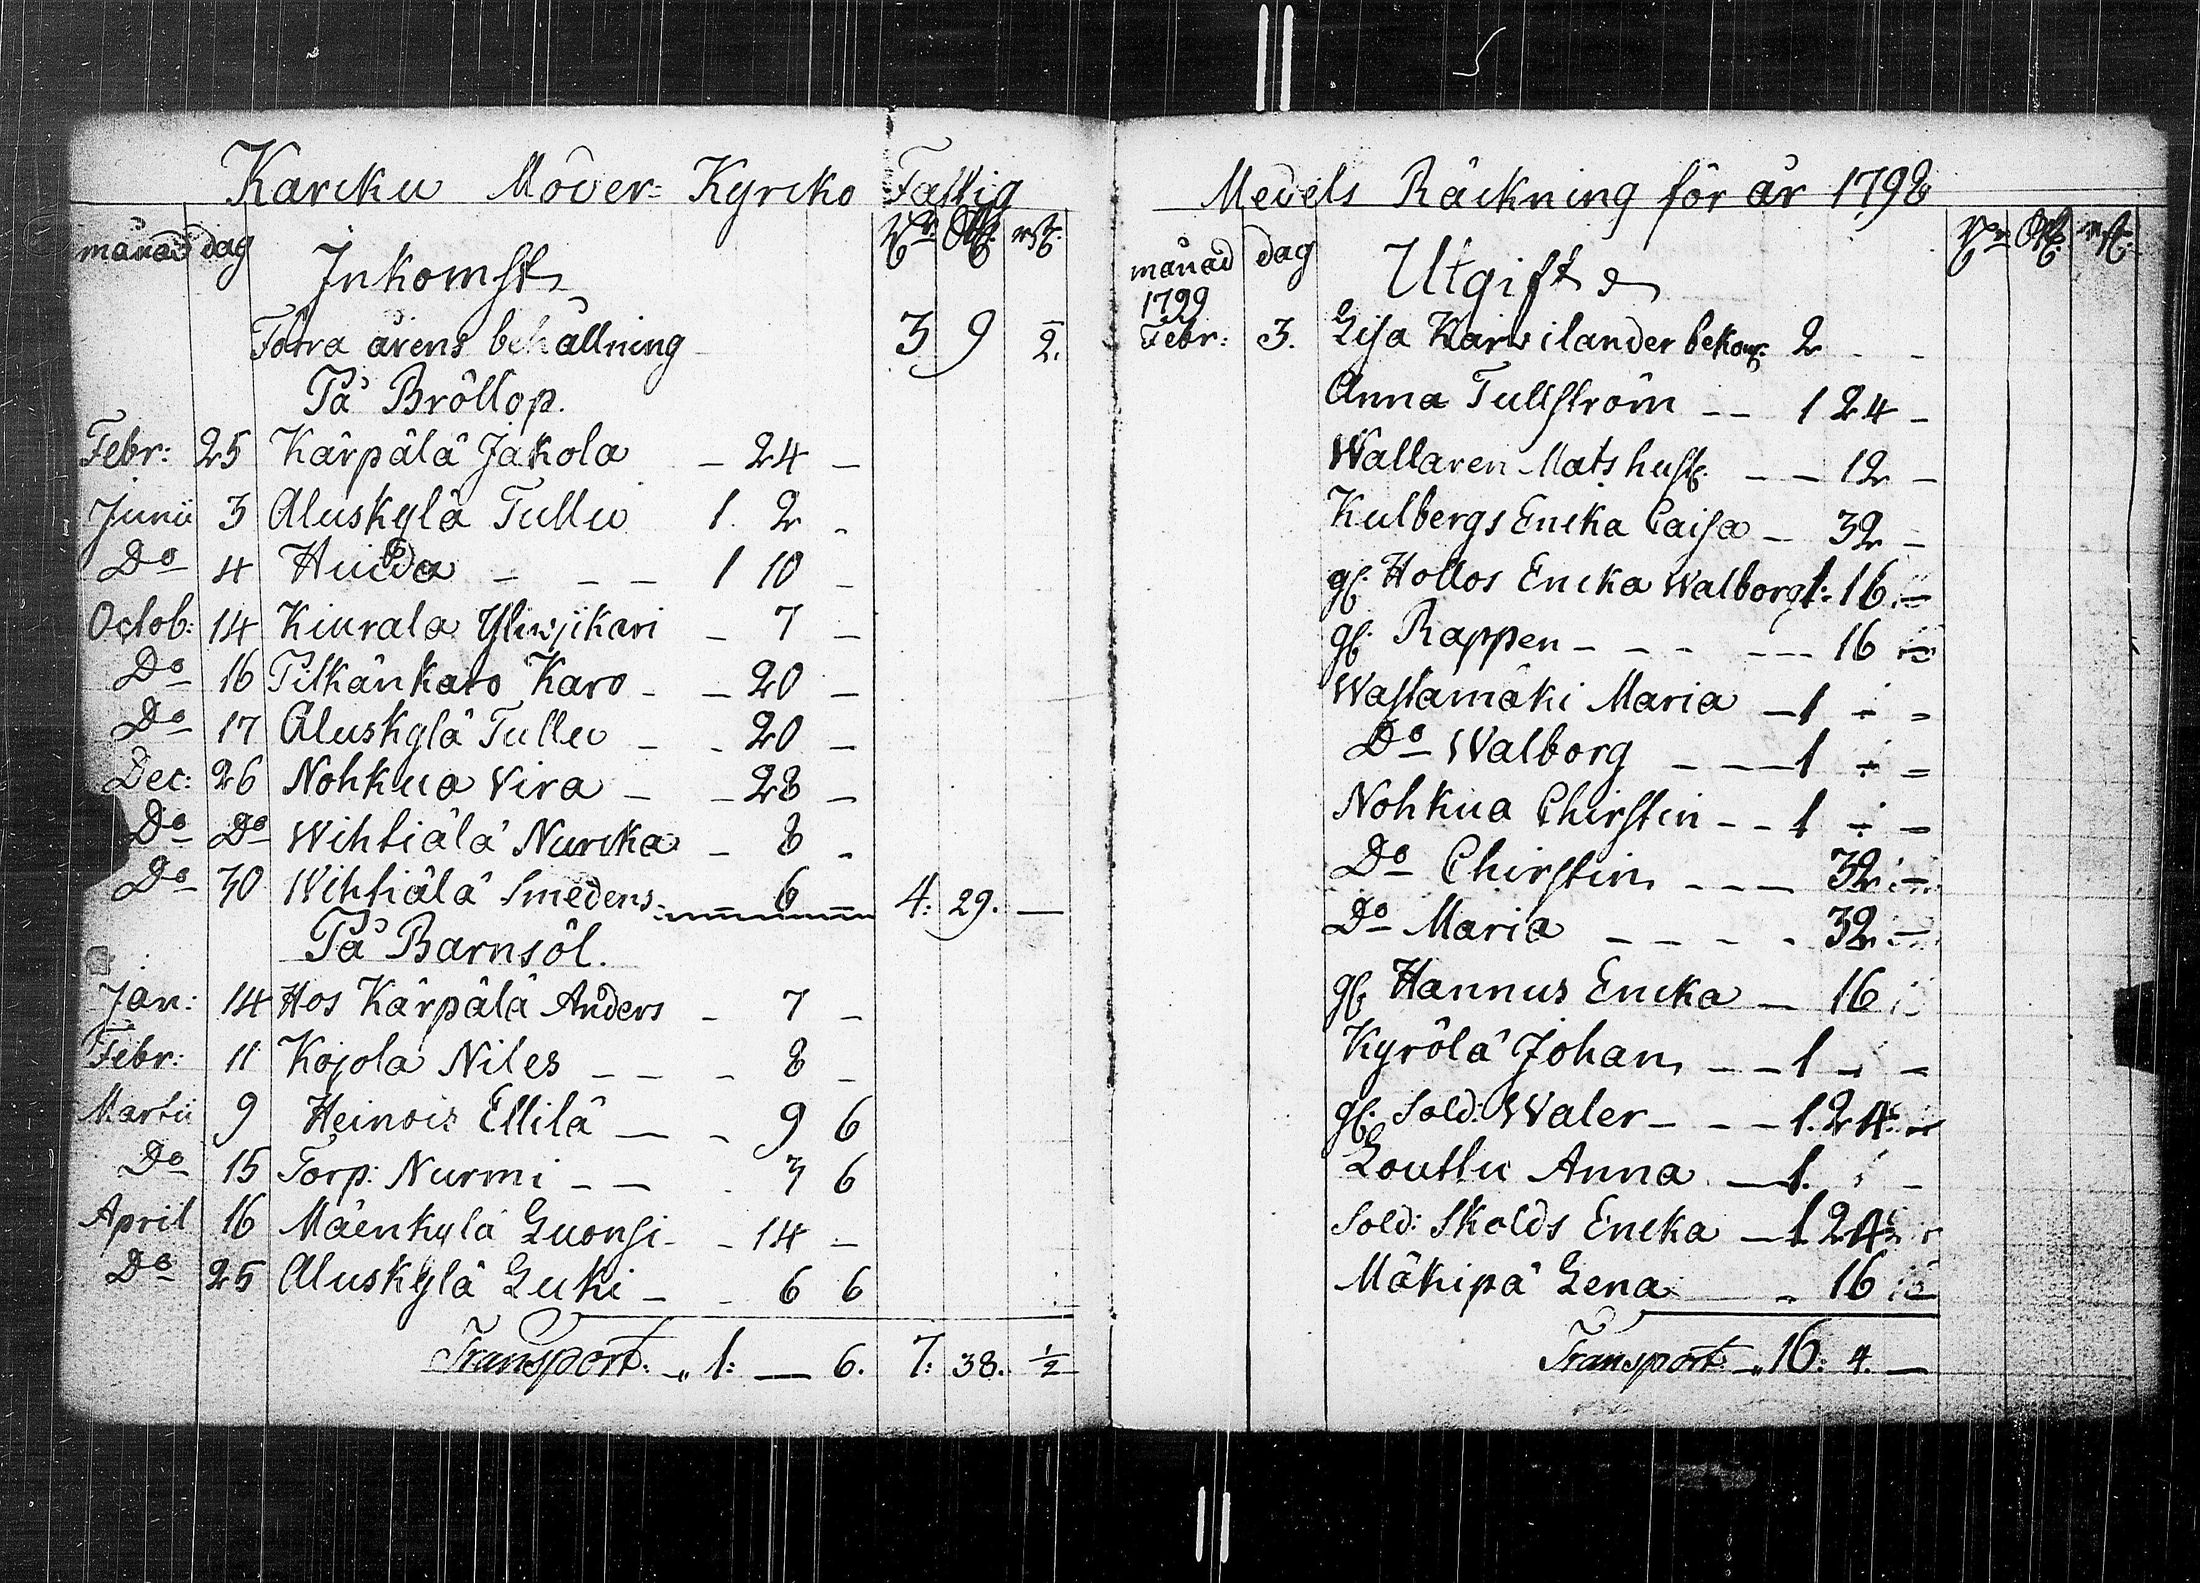 Karcku Moder= Kyrcko Fattig
månad dag
Inkomst
Förra årens behållning 3 9 1/2.
På Bröllop.
Febr: 25 Kärpälä Jakola – 24 –
Junii 3 Aluskylä Tullu 1. 2 –
Do 4 Huida – – – 1 10 –
Octob: 14 Kiurala Yliwjikari – 7 –
Do 16 Pitkänkaro Karo – – 20 –
Do 17 Aluskylä Tullu – – 20 –
Dec: 26 Nohkua Vira – – 28 –
Do Do Wihtiälä Nurcka – 8 –
Do 30 Wihtiälä Smedens – 6 – 4: 29. —
På Barnsöl.
Jan: 14 Hos Kärpälä Anders – 7 –
Febr: 11 Kojola Niles – – – 8 –
Martii 9 Heinois Ellilä — – 9 6
Do 15 Torp: Nurmi – — – 3 6
April 16 Mäenkylä Luonsi – – 14 –
Do 25 Aluskylä Luki – – 6 6
Transport: – 1: — 6. 7: 38. 1/2
Medels Räckning för år 1798
månad dag
Utgifter
1799
Febr: 3. Lisa Karwilander bekom: 2 – –
Anna Tullström – – 1 24 –
Wallaren Mats hust: – – 12 –
Kulbergs Encka Caisa – 32 –
gl: Hollos Encka Walborg 1: 16. –
gl: Rappen – – – – – – 16 –
Wastamäki Maria – 1 – –
Do Walborg – – – 1 – –
Nohkua Chirstin – – 1 – –
Do Chirstin – – – 32 –
Do Maria – – – – 32 –
gl: Hannus Encka – 16
Kyrölä Johan – – 1 – –
gl: Sold: Waler – – – 1. 24 –
Louttu Anna – 1. –
Sold: Skolds Encka – 1. 24
Mäkipä Lena – 16 –
Transport: – 16: 4. —